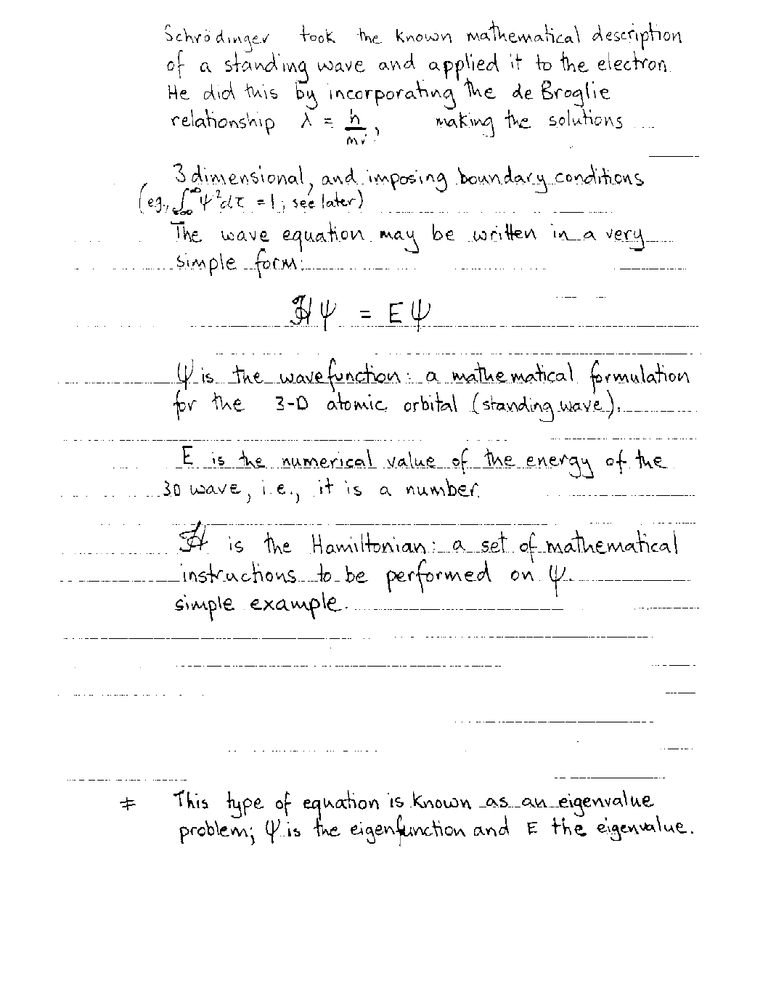 Schrödinger took the known mathematical description
of a standing wave and applied it to the electron.
He did this by incorporating the de Broglie
relationship λ = h/mv, making the solutions ...
3 dimensional, and imposing boundary conditions
(eg., ∫ Ψ²dτ = 1; see later)
The wave equation may be written in a very
simple form:
ℋΨ = EΨ
Ψ is the wavefunction: a mathematical formulation
for the 3-D atomic orbital (standing wave).
E is the numerical value of the energy of the
3D wave, i.e., it is a number.
ℋ is the Hamiltonian: a set of mathematical
instructions to be performed on Ψ.
simple example.
≠ This type of equation is known as an eigenvalue
problem; Ψ is the eigenfunction and E the eigenvalue.